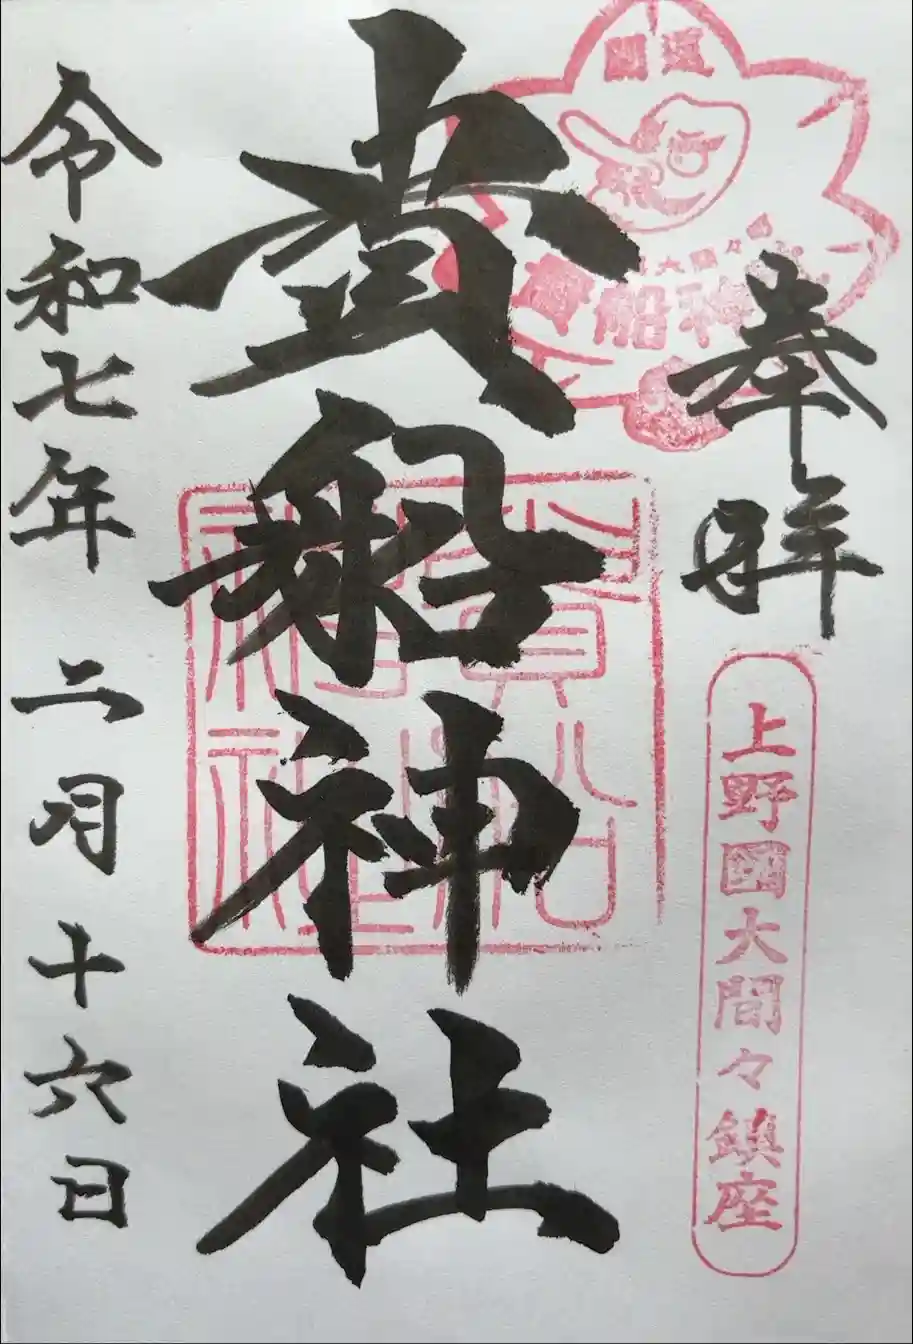 奉拝
開運
大間々町
貴船神
上野國大間々鎮座
貴船神社
貴船神社
令和七年二月十六日